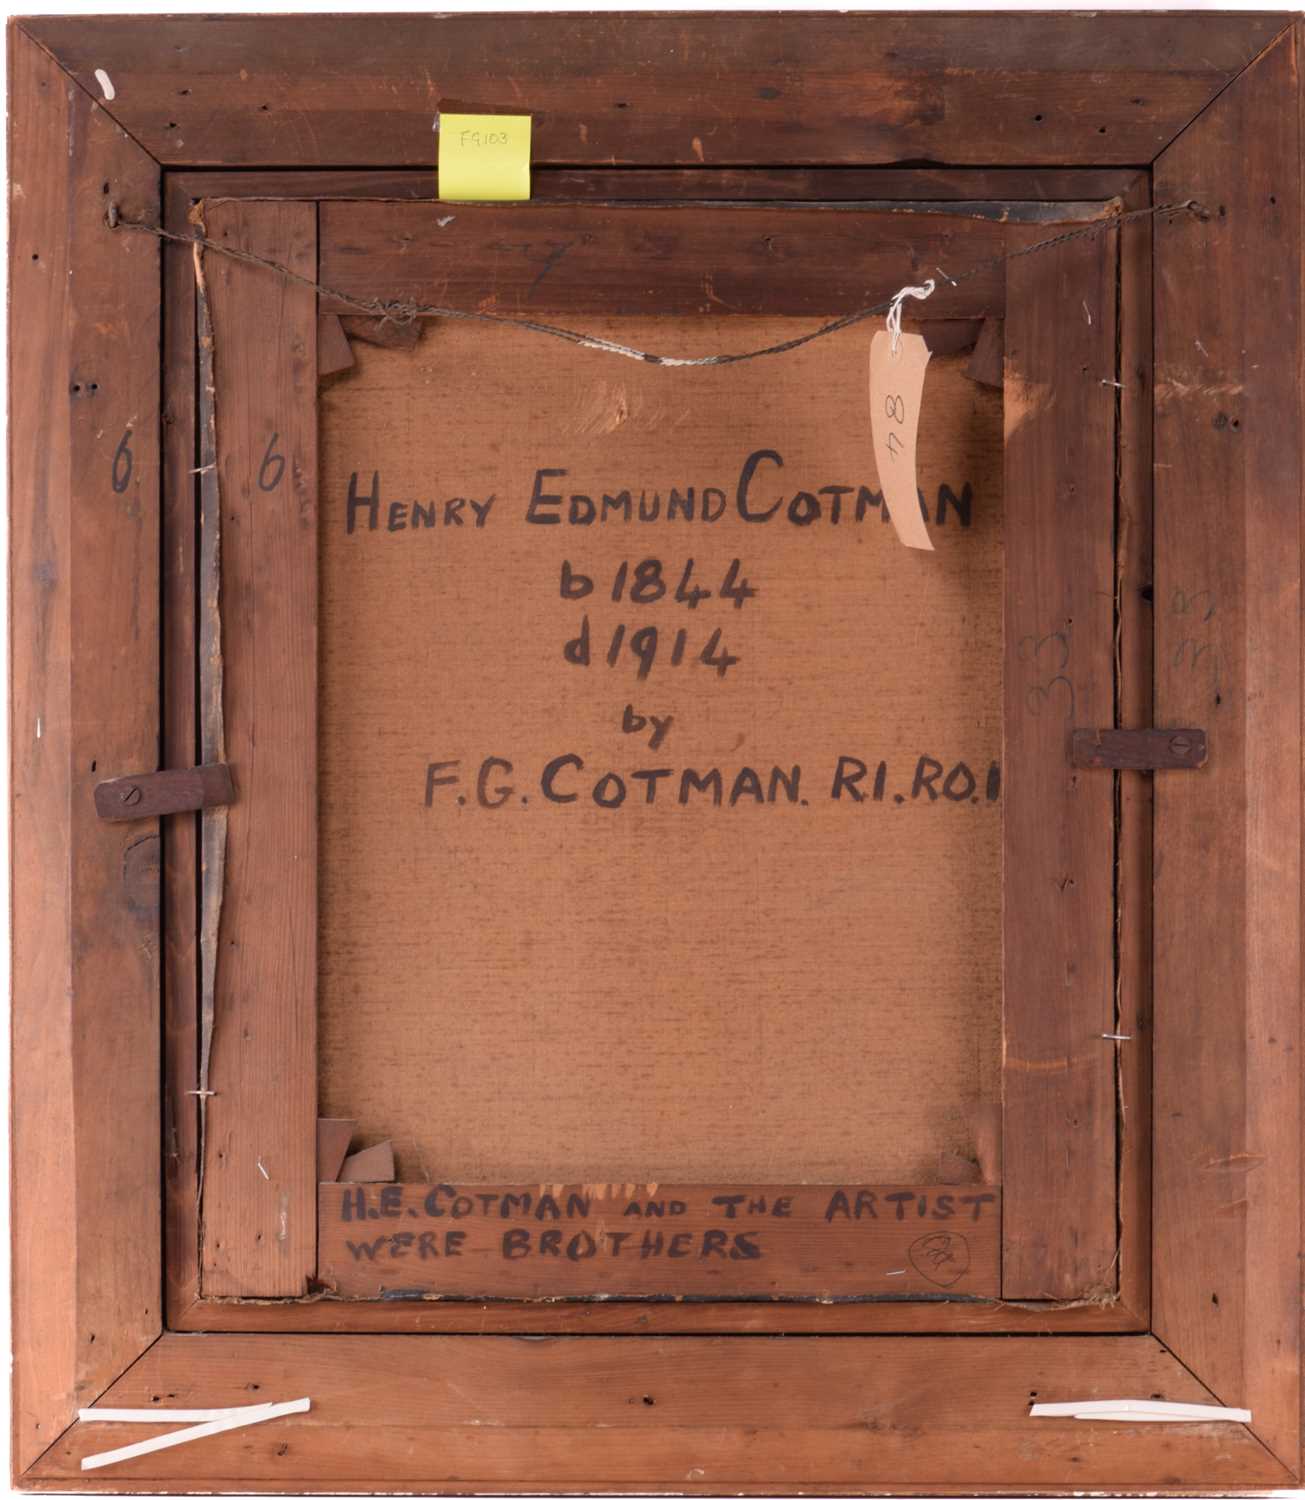 FG103
84
6 6
HENRY EDMUND COTMAN
b 1844
d 1914
33 33
by
F.G. COTMAN. R.I. RO.I
H.E. COTMAN AND THE ARTIST
WERE BROTHERS